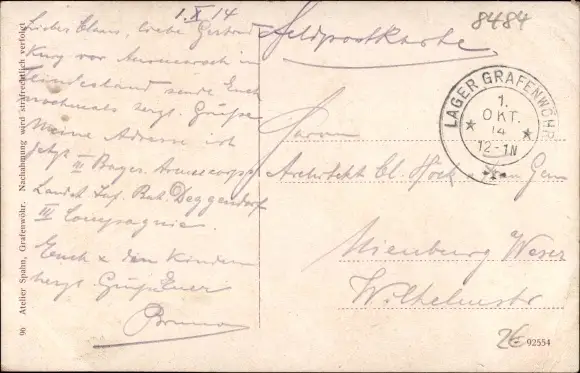 1. X 14
Liebes Claus, liebe Gertrud
Kurz vor Ausmarsch in
Feindesland sende Euch
nochmals herzl. Grüße
Meine Adresse ist
jetzt III Bayer. Armeecorps
Landst. Inf. Bat. Deggendorf
III Compagnie.
Euch & den Kindern
herzl. Gruß Euer
Bruno
8484
Feldpostkarte
LAGER GRAFENWÖHR
1.
OKT.
14
12-1N
Herrn
Architekt Cl. Hock
Nienburg Weser
Wilhelmstr
2€
92554
96 Atelier Spahn, Grafenwöhr. Nachahmung wird strafrechtlich verfolgt